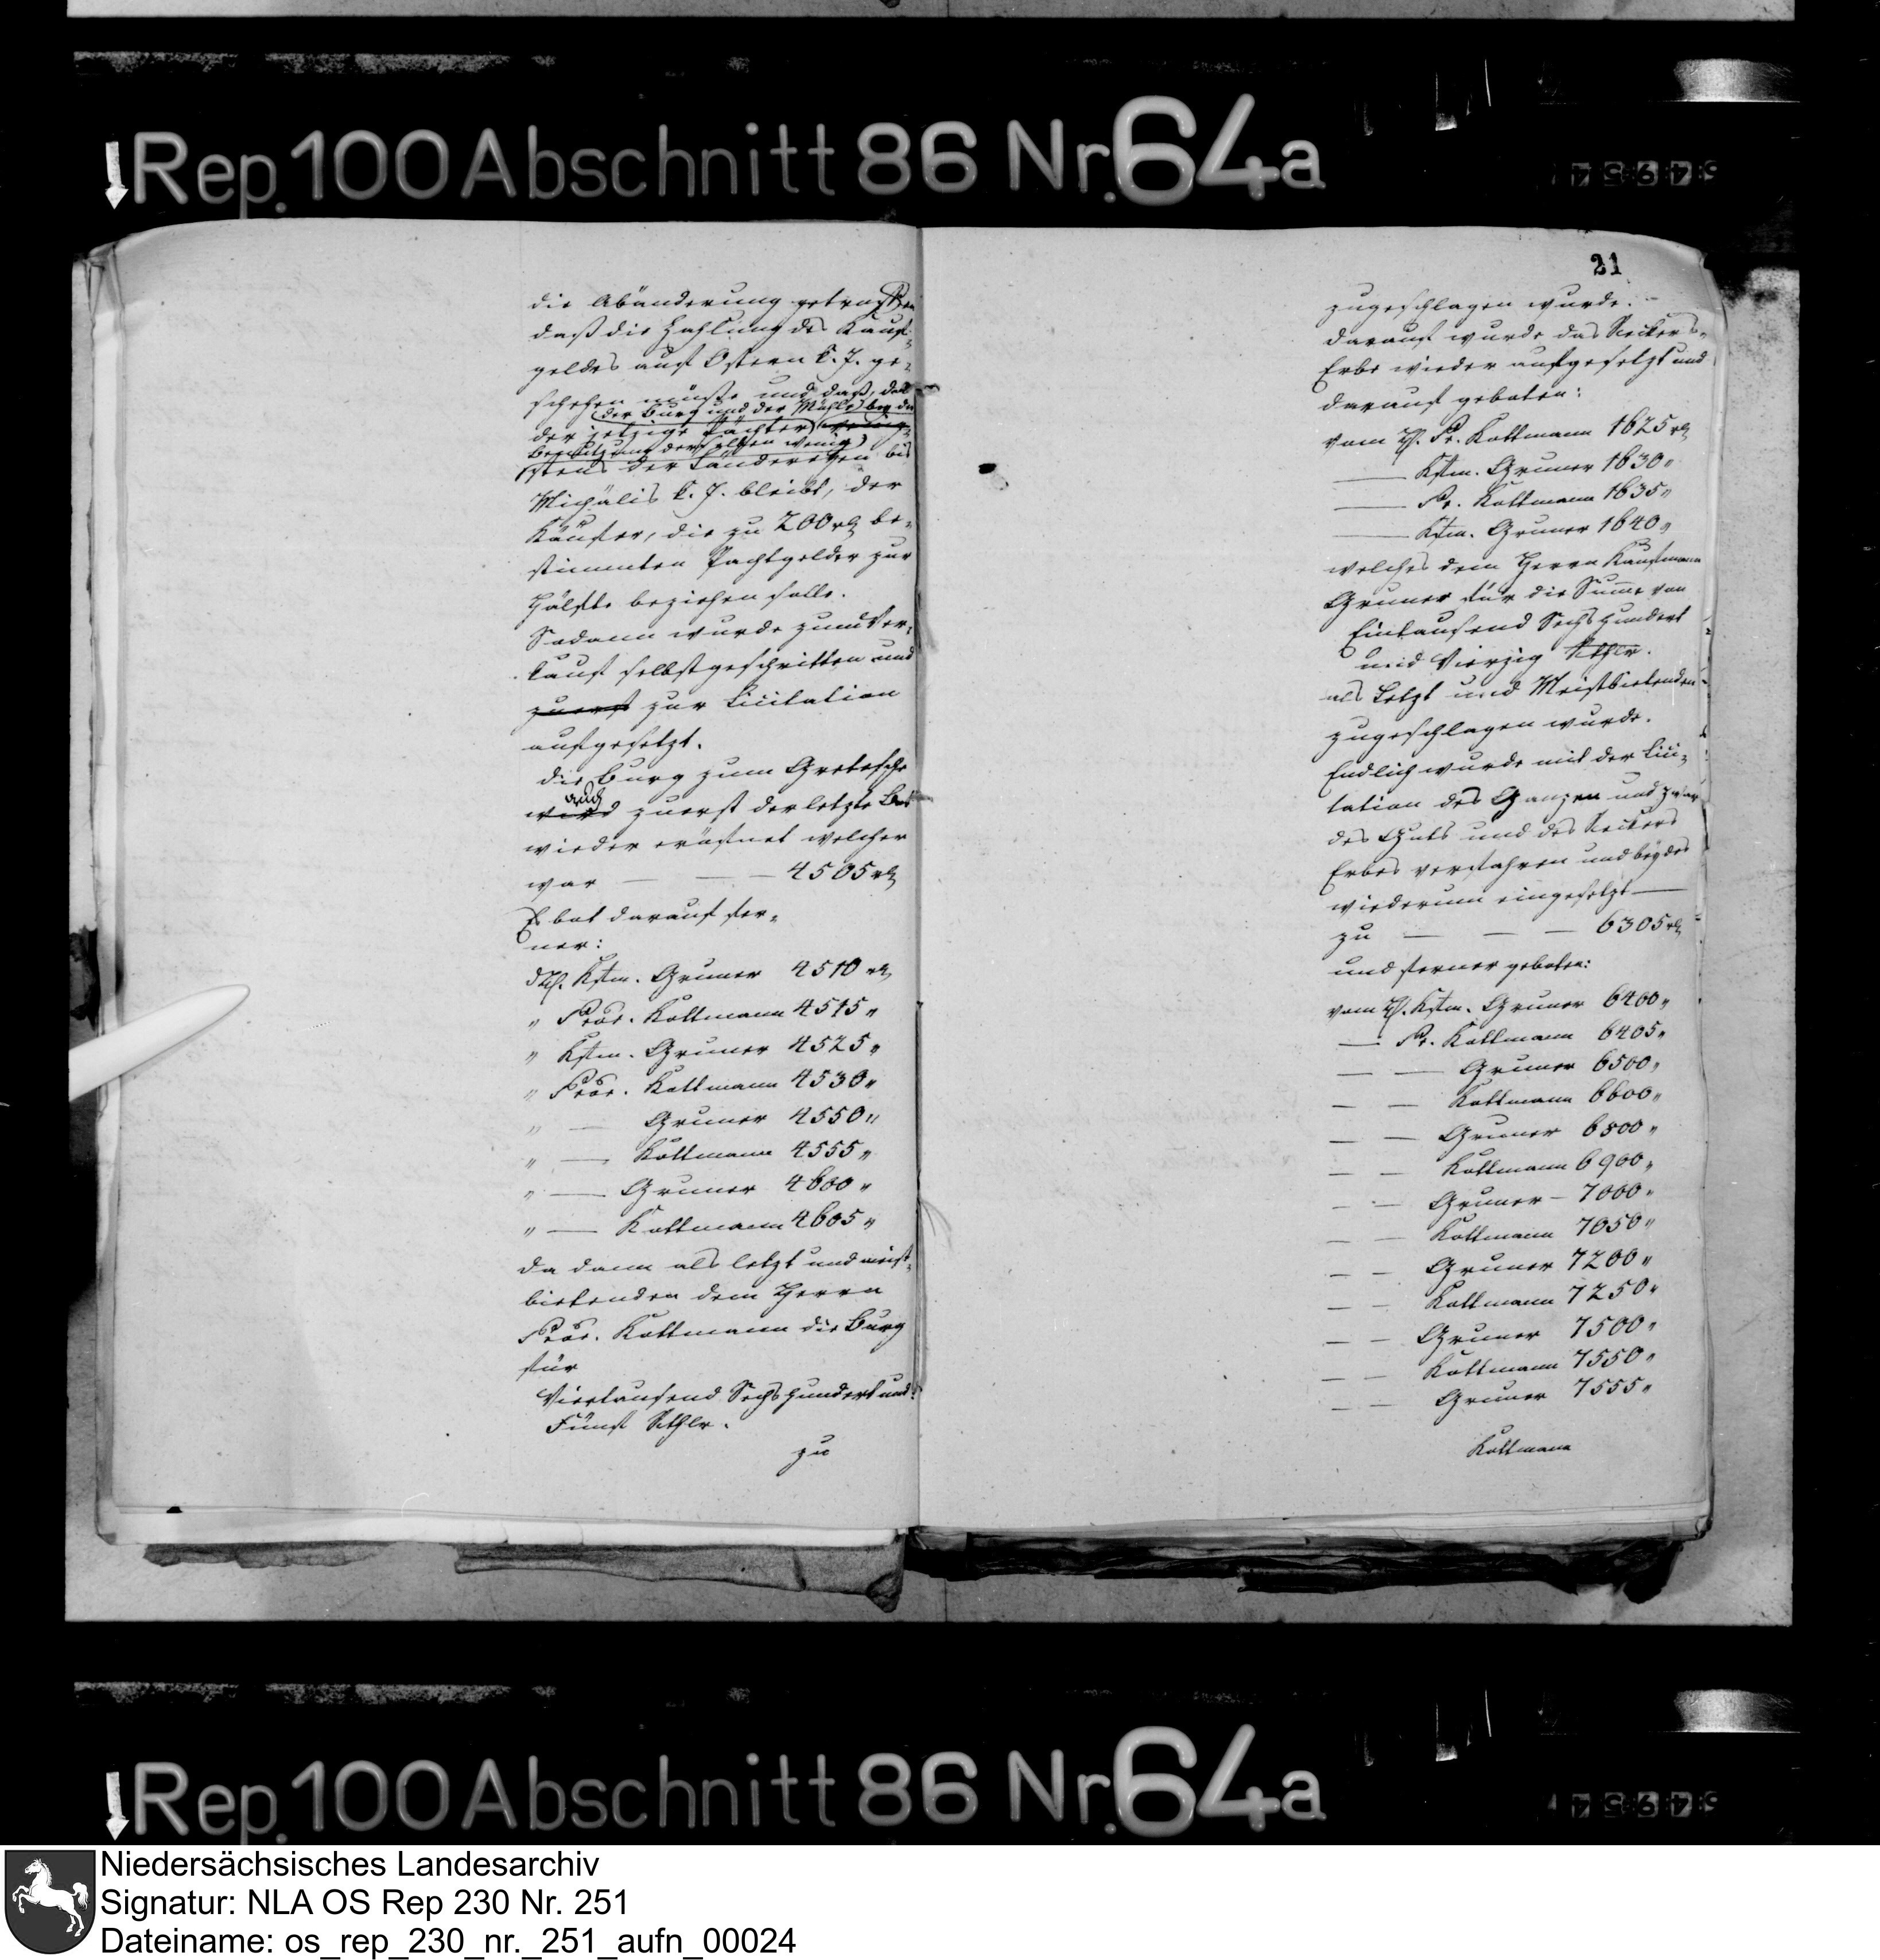 Rep. 100 Abschnitt 86 Nr. 64a
die Abänderung getroffen
daß die Zahlung des Kauf-
geldes auf Ostern k. J. ge-
schehen müsste und daß, da
der Burg und der Mühle bey der
der jetzige Pächter
Benutzung derselben wenig
stens der Ländereyen bis
Michälis k. J. bleibt, der
Käufer, die zu 200 rt be-
stimmten Pachtgelder zur
Hälfte beziehen solle.
Sodann wurde zum Ver-
kauf selbst geschritten und
zuerst zur Licitation
aufgesetzt.
die Burg zum Gretesche
auch
wird zuerst der letzte Bot
wieder eröfnet welcher
war — — — 4505 rt
Es bot darauf fer-
ner:
d H. Kfm. Gruner 4510 rt
" Proc. Kottmann 4515 "
" Kfm. Gruner 4525 "
" Proc. Kottmann 4530 "
" — Gruner 4550 "
" — Kottmann 4555 "
" — Gruner 4600 "
" — Kottmann 4605 "
da dann als letzt und meist-
bietenden dem Herrn
Proc. Kottmann die Burg
für
Viertausend Sechshundert und
Fünf Rthlr.
zu
21
zugeschlagen wurde. -
darauf wurde das Reckers-
Erbe wieder aufgesetzt und
darauf geboten:
vom H. Pr. Kottmann 1625 rt
— Kfm. Gruner 1630 "
— Pr. Kottmann 1635 "
— Kfm. Gruner 1640 "
welches dem Herrn Kaufmann
Gruner für die Summe von
Eintausend Sechshundert
und Vierzig Rthlr.
als Letzt und Meistbietenden
zugeschlagen wurde.
Endlich wurde mit der Lici-
tation des Ganzen und zwar
des Guts und des Reckers
Erbes verfahren und beydes
wiederum eingesetzt —
zu — — — 6305 rt
und ferner geboten:
vom H. Kfm. Gruner 6400 "
— Pr. Kottmann 6405 "
— — Gruner 6500 "
— — Kottmann 6600 "
— — Gruner 6800 "
— — Kottmann 6900 "
— — Gruner — 7000 "
— — Kottmann 7050 "
— — Gruner 7200 "
— — Kottmann 7250 "
— — Gruner 7500 "
— — Kottmann 7550 "
— — Gruner 7555 "
Kottmann
Rep. 100 Abschnitt 86 Nr. 64a
Niedersächsisches Landesarchiv
Signatur: NLA OS Rep 230 Nr. 251
Dateiname: os_rep_230_nr._251_aufn_00024